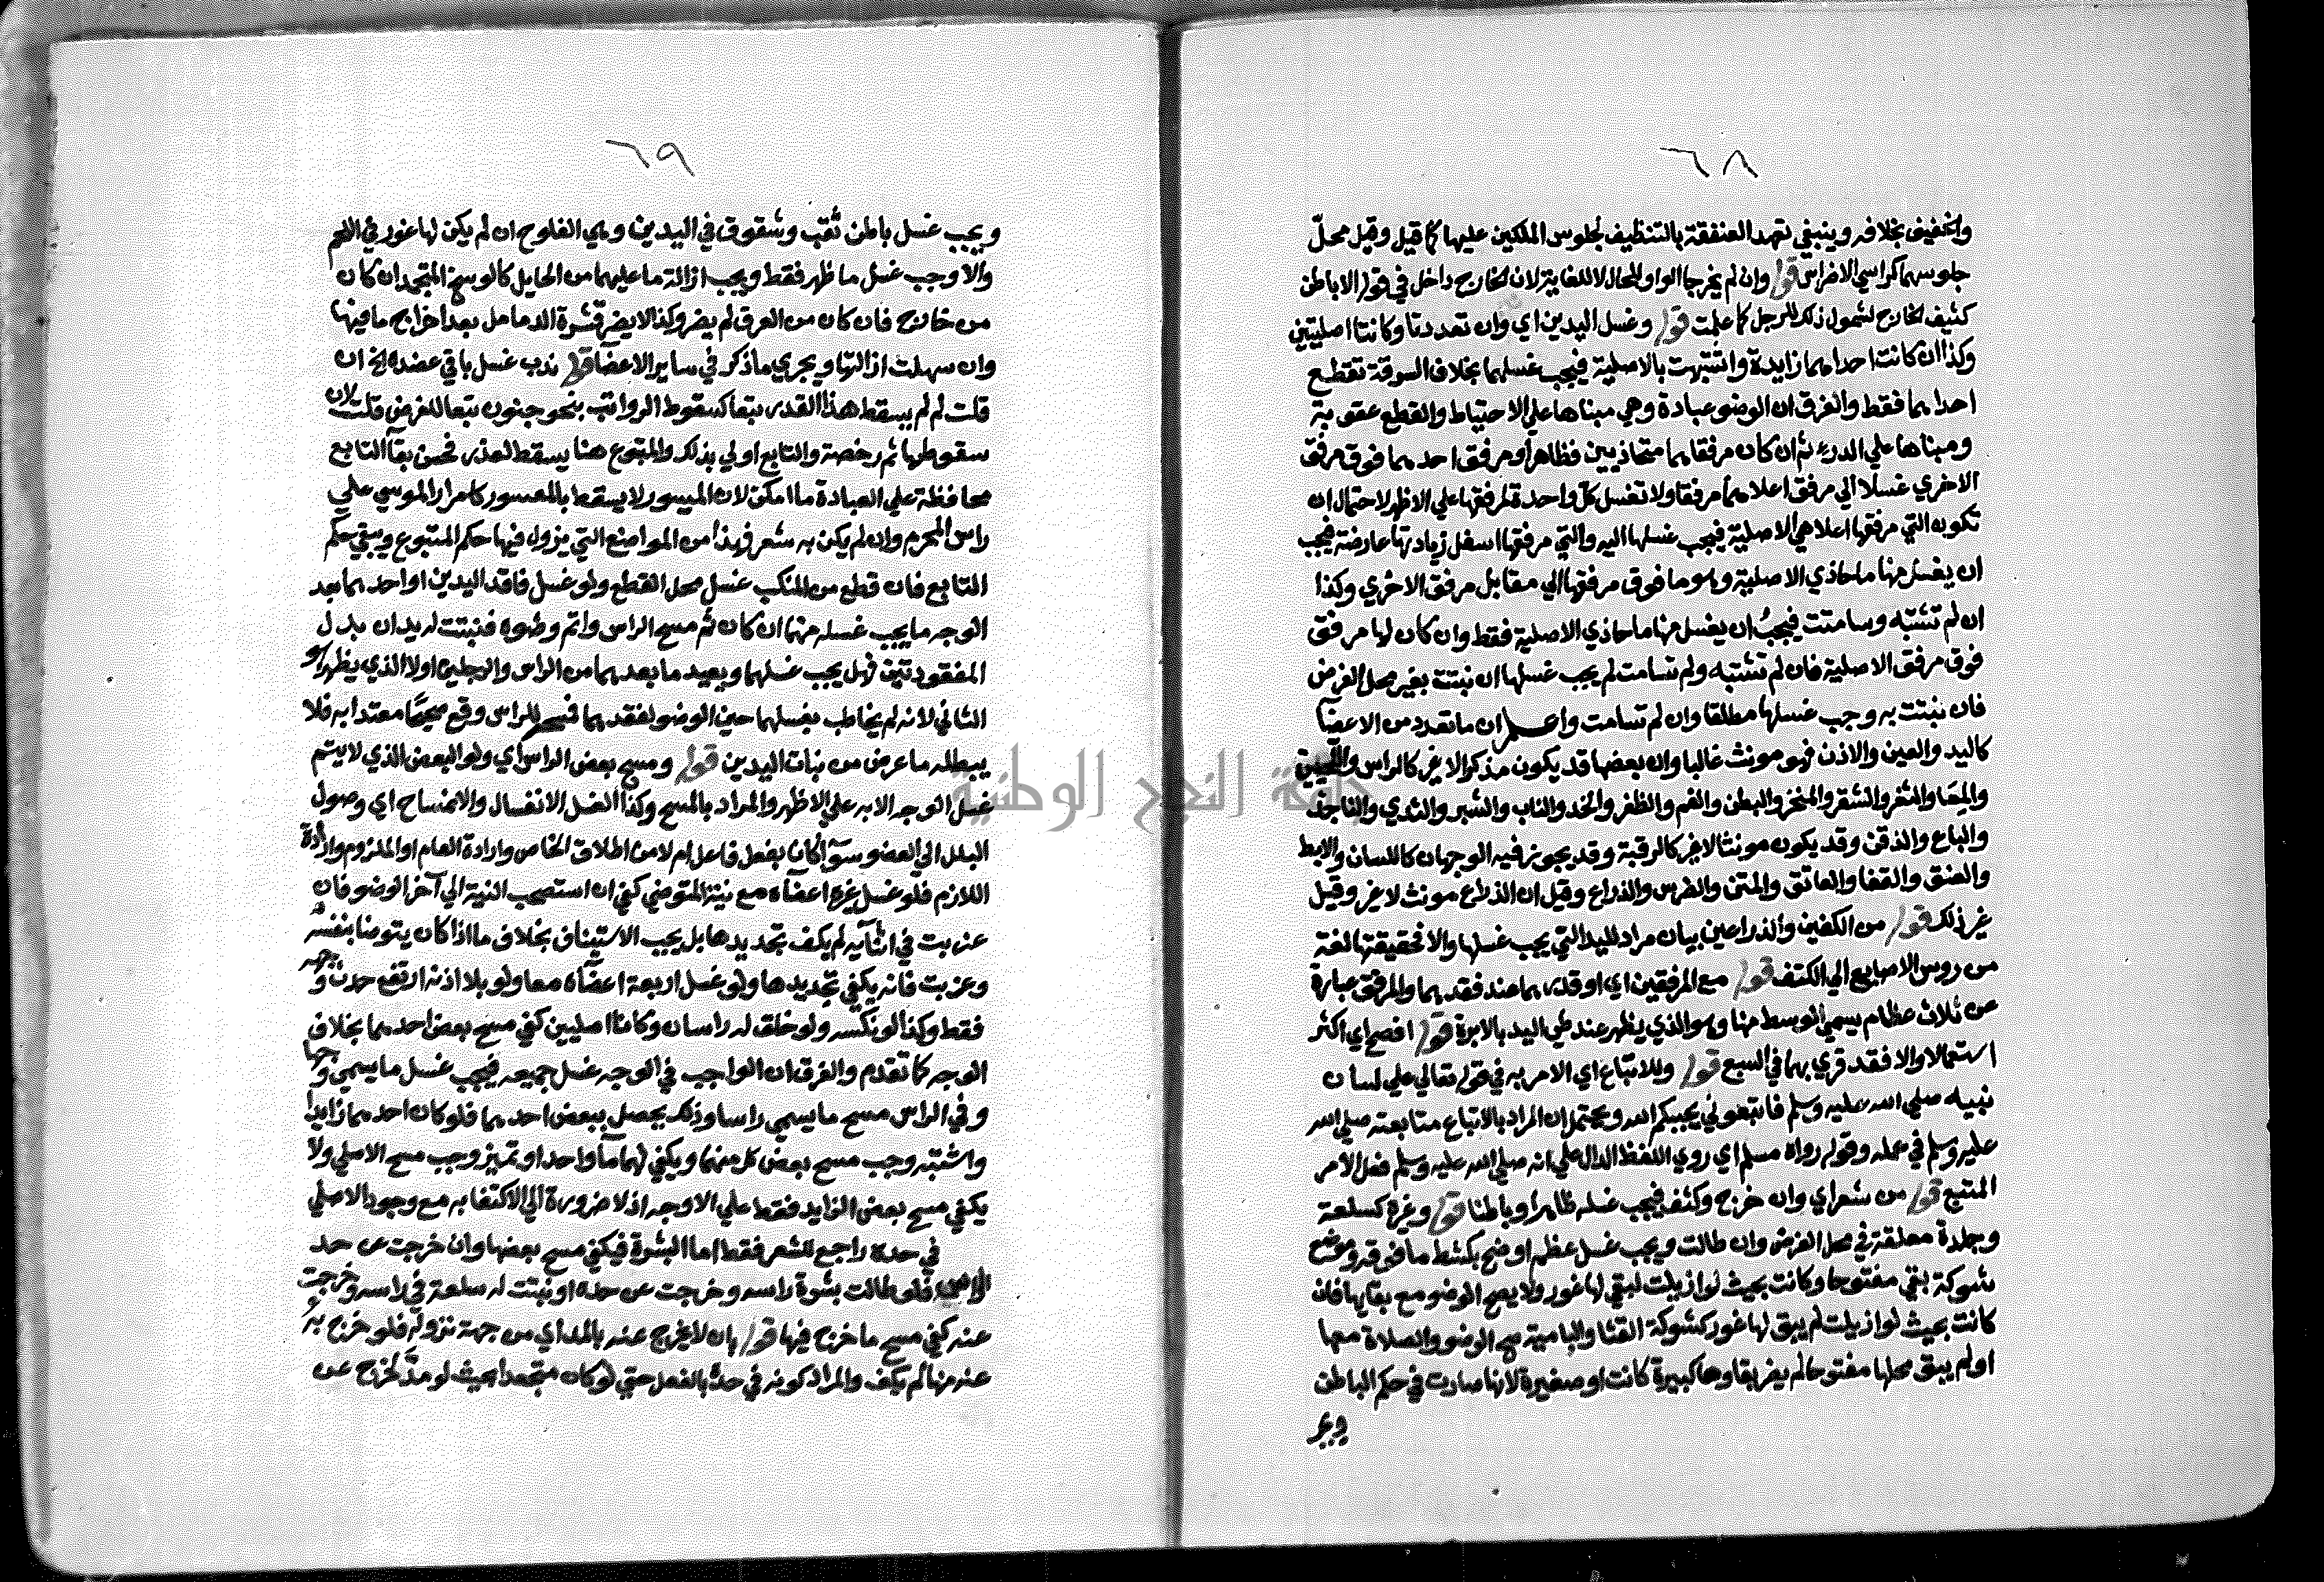 ٦٨
والخفيف بخلافه وينبغي تعهد العنفقة بالتنظيف لجلوس الملكين عليها كما قيل وقيل محلّ
جلوسهما كراسي الاضراس قوله وان لم يخرجا الواو للحال لا للغاية لان الخارج داخل في قوله الا باطن
كثيف الخارج لشمول ذلك للرجل كما علمت قوله وغسل اليدين اي وان تعددتا وكانتا اصليتين
وكذا ان كانت احداهما زايدة واشتبهت بالاصلية فيجب غسلهما بخلاف السرقة تقطع
احداهما فقط والفرق ان الوضو عبادة وهي مبناها علي الاحتياط والقطع عقوبة
ومبناها علي الدرء ثم ان كان مرفقاهما متحاذيين فظاهر او مرفق احدهما فوق مرفق
الاخري غسلا الي مرفق اعلاهما مرفقا ولا تغسل كل واحدة قدر مرفقها علي الاظهر لاحتمال ان
تكون التي مرفقها اعلا هي الاصلية فيجب غسلها اليه والتي مرفقها اسفل زيادتها عارضة فيجب
ان يغسل منها ما حاذي الاصلية وهو ما فوق مرفقها الي مقابل مرفق الاخري وكذا
ان لم تشتبه وسامتت فيجب ان يغسل منها ما حاذي الاصلية فقط وان كان لها مرفق
فوق مرفق الاصلية فان لم تشتبه ولم تسامت لم يجب غسلها ان نبتت بغير محل الفرض
فان نبتت به وجب غسلها مطلقا وان لم تسامت واعلم ان ما تعدد من الاعضآ
كاليد والعين والاذن فهو مونث غالبا وان بعضها قد يكون مذكرا لا غير كالراس والجبين
والمعا والثغر والشعر والمنخر والبطن والفم والظفر والخد والناب والشبر والثدي والناجذ
والباع والذقن وقد يكون مونثا لا غير كالرقبة وقد يجوز فيه الوجهان كاللسان والابط
والعنق والقفا والعاتق والمتن والضرس والذراع وقيل ان الذراع مونث لا غير وقيل
غير ذلك قوله من الكفين والذراعين بيان مراد لليد التي يجب غسلها والا فحقيقتها لغة
من روس الاصابع الي الكتف قوله مع المرفقين اي او قدرهما عند فقدهما والمرفق عبارة
عن ثلاث عظام يسمي الوسط منها وهو الذي يظهر عند طي اليد بالابرة قوله افصح اي اكثر
استعمالا والا فقد قري بهما في السبع قوله وللاتباع اي الامر به في قوله تعالي علي لسان
نبيه صلي الله عليه وسلم فاتبعوني يحببكم الله ويحتمل ان المراد بالاتباع متابعته صلي الله
عليه وسلم في عمله وقوله رواه مسلم اي روي اللفظ الدال علي انه صلي الله عليه وسلم فعل الامر
المتبع قوله من شعر اي وان خرج وكثف فيجب غسله ظاهرا وباطنا قوله وغيره كسلعة
وجلدة معلقة في محل الفرض وان طالت ويجب غسل عظم اوضح بكشط ما فوقه وموضع
شوكة بقي مفتوحا وكانت بحيث لو ازيلت لبقي لها غور ولا يصح الوضو مع بقايها فان
كانت بحيث لو ازيلت لم يبق لها غور كشوكة القثا والبامية صح الوضو والصلاة معها
او لم يبق محلها مفتوحا لم يضر بقاوها كبيرة كانت او صغيرة لانها صارت في حكم الباطن
ويجب
٦٩
ويجب غسل باطن ثقب وشقوق في اليدين وهي الفلوح ان لم يكن لها غور في اللحم
والا وجب غسل ما ظهر فقط ويجب ازالة ما عليهما من الحايل كالوسخ المتجمد ان كان
من خارج فان كان من العرق لم يضر وكذا لا يضر قشرة الدمامل بعد اخراج ما فيها
وان سهلت ازالتها ويجري ما ذكر في ساير الاعضآ قوله ندب غسل باقي عضده الخ ان
قلت لم لم يسقط هذا القدر تبعا كسقوط الرواتب بنحو جنون تبعا للفرض قلت لان
سقوطها ثم رخصة والتابع اولي بذلك والمتبوع هنا يسقط لعذر فحسن بقآ التابع
محافظة علي العبادة ما امكن لان الميسور لا يسقط بالمعسور كامرار الموسي علي
راس المحرم وان لم يكن به شعر فهذا من المواضع التي يزول فيها حكم المتبوع ويبقي حكم
التابع فان قطع من المنكب غسل محل القطع ولو غسل فاقد اليدين او احدهما بعد
الوجه ما يجب غسله منهما ان كان ثم مسح الراس واتم وضوه فنبتت له يدان بدل
المفقودتين فهل يجب غسلهما ويعيد ما بعدهما من الراس والرجلين او لا الذي يظهر هو
الثاني لانه لم يخاطب بغسلهما حين الوضو لفقدهما فمسح الراس وقع صحيحا معتدا به فلا
يبطله ما عرض من نبات اليدين قوله ومسح بعض الراس اي ولو البعض الذي لا يتم
غسل الوجه الا به علي الاظهر والمراد بالمسح وكذا الغسل الانغسال والانمساح اي وصول
البلل الي العضو سوآ اكان بفعل فاعل ام لا من اطلاق الخاص وارادة العام او الملزوم وارادة
اللازم فلو غسل غيره اعضاه مع نية المتوضي كفي ان استصحب النية الي آخر الوضو فان
عزبت في اثنآيه لم يكف تجديدها بل يجب الاستيناف بخلاف ما اذا كان يتوضا بنفسه
وعزبت فانه يكفي تجديدها ولو غسل اربعة اعضاه معا ولو بلا اذنه ارتفع حدث وجهه
فقط وكذا لو نكسه ولو خلق له راسان وكانا اصليين كفي مسح بعض احدهما بخلاف
الوجه كما تقدم والفرق ان الواجب في الوجه غسل جميعه فيجب غسل ما يسمي وجها
وفي الراس مسح ما يسمي راسا وذلك يحصل ببعض احدهما فلو كان احدهما زايدا
واشتبه وجب مسح بعض كل منهما ويكفي لهما مآ واحد او تميز وجب مسح الاصلي ولا
يكفي مسح بعض الزايد فقط علي الاوجه اذ لا ضرورة الي الاكتفا به مع وجود الاصلي
في حده راجع للشعر فقط اما البشرة فيكفي مسح بعضها وان خرجت عن حد
الراس فلو طالت بشرة راسه وخرجت عن حده او نبتت له سلعة في راسه وخرجت
عنه كفي مسح ما خرج فيها قوله بان لا يخرج عنه بالمد اي من جهة نزوله فلو خرج به
عنه منها لم يكف والمراد كونه في حده بالفعل حتي لو كان متجعدا بحيث لو مد لخرج عن
جامعة النجاح الوطنية